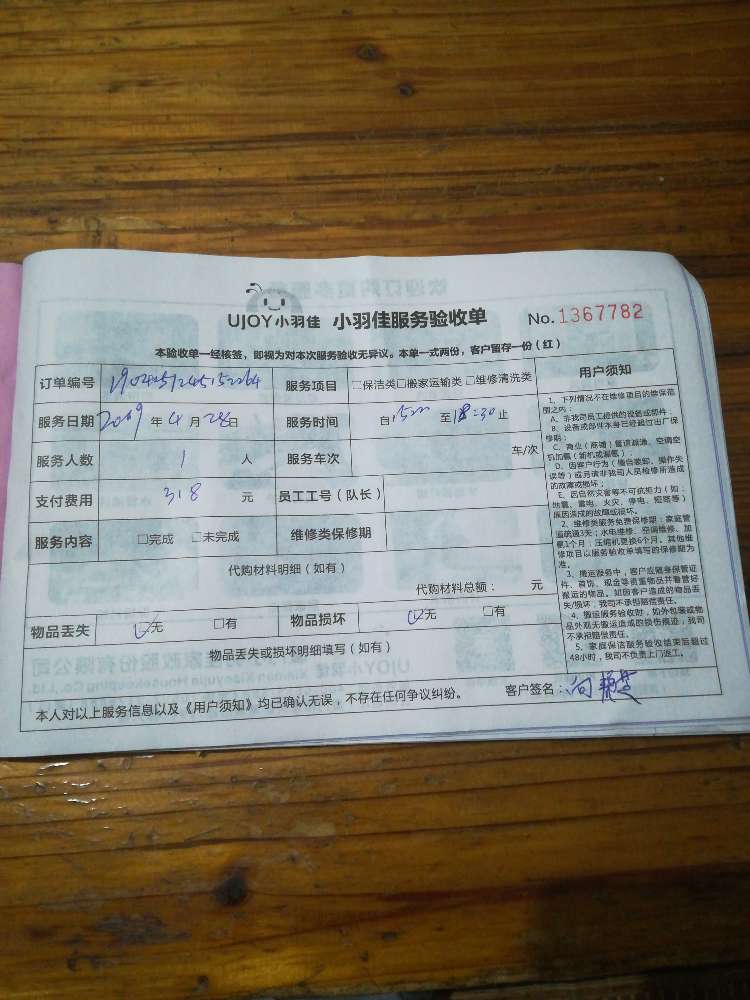 UJOY小羽佳 小羽佳服务验收单 No.1367782
本验收单一经核签，即视为对本次服务验收无异议。本单一式两份，客户留存一份（红）
订单编号 服务项目 □保洁类□搬家运输类□维修清洗类
服务日期 2019年4月28日 服务时间 自 至18:30止
服务人数 1 人 服务车次 车/次
支付费用 318 元 员工工号（队长）
服务内容 □完成 □未完成 维修类保修期
代购材料明细（如有）
代购材料总额： 元
物品丢失 ☑无 □有 物品损坏 ☑无 □有
物品丢失或损坏明细填写（如有）
本人对以上服务信息以及《用户须知》均已确认无误，不存在任何争议纠纷。 客户签名：向
用户须知
1、下列情况不在维修项目的维保范
围之内：
A、非我司员工提供的设备或部件；
B、设备或部件本身已经超过出厂保
修期；
C、商业（店铺）管道疏通、空调空
机加氟（新机或漏氟）；
D、因客户行为（擅自装卸、操作失
误等）或另请非我司人员检修所造成
的故障或损坏；
E、因自然灾害等不可抗拒力（如：
地震、雷电、火灾、停电、短路等）
原因造成的故障或损坏。
2、维修类服务免费保修期：家庭管
道疏通3天；水电维修、空调维修、加
氟1个月；压缩机更换6个月。其他维
修项目以服务验收单填写的保修期为
准。
3、搬运服务中，客户应随身保管证
件、首饰、现金等贵重物品并看管好
搬运的物品。如因客户造成的物品丢
失/损坏，我司不承担赔偿责任。
4、搬运服务验收时，如外包装或物
品外观无搬运造成的损伤痕迹，我司
不承担赔偿责任。
5、家庭保洁服务验收结束后超过
48小时，我司不负责上门返工。